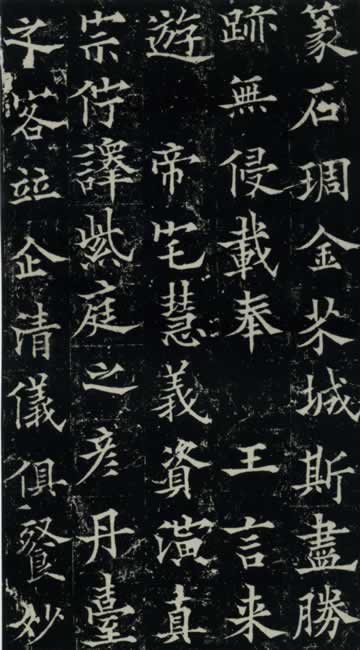 篆石琱金芥城斯盡勝
跡無侵載奉 王言来
遊 帝宅慧義資演真
宗佇譯紫庭之彦丹臺
之客竝企清儀俱餐妙